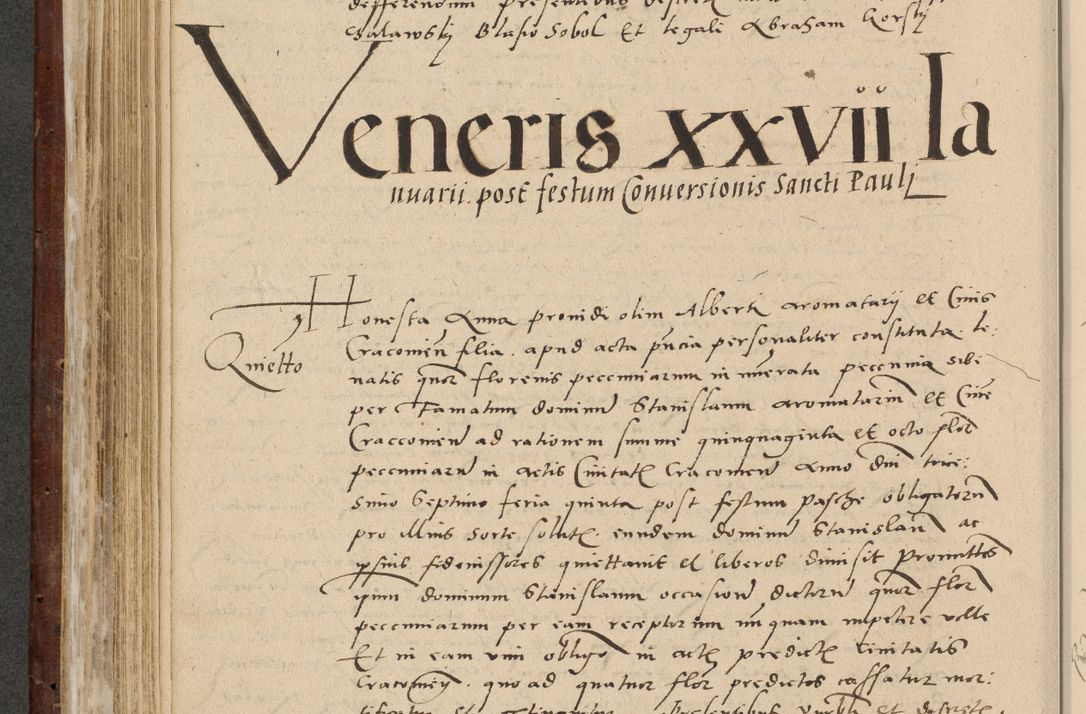 Calawsky Blasio Sobol Et legali Abraham Gorsky
Veneris xxvii Ia
nuarii post festum Conversionis Sancti Pauli
Honesta Anna providi olim Alberti aromatarij et Civis
Quietto
Cracovien filia apud acta pncia personaliter constituta te:
natis quor florenis pecuniarum in nuerata peccunia sibi
per Famatum dominum Stanislaum aromatarium et Cive
Craccovien ad rationem summe quinquaginta et octo flor
pecuniarum in actis Civitatis Cracovien Anno dni trice:
simo Septimo feria quinta post festum Pasche obligatorum
pro illius sorte solutis eundem dominum Stanislaum ac
ipsius fideiussores quiettavit et liberos dimisit Promittes
ipsum dominum Stanislaum occasione dictorum quor flor
pecuniarum per eam receptorum nunquam impetere velle
Et in eam vim obligo in actis predicte Civitatis
Cracovien quo ad quatuor flor predictos cassatur mor: